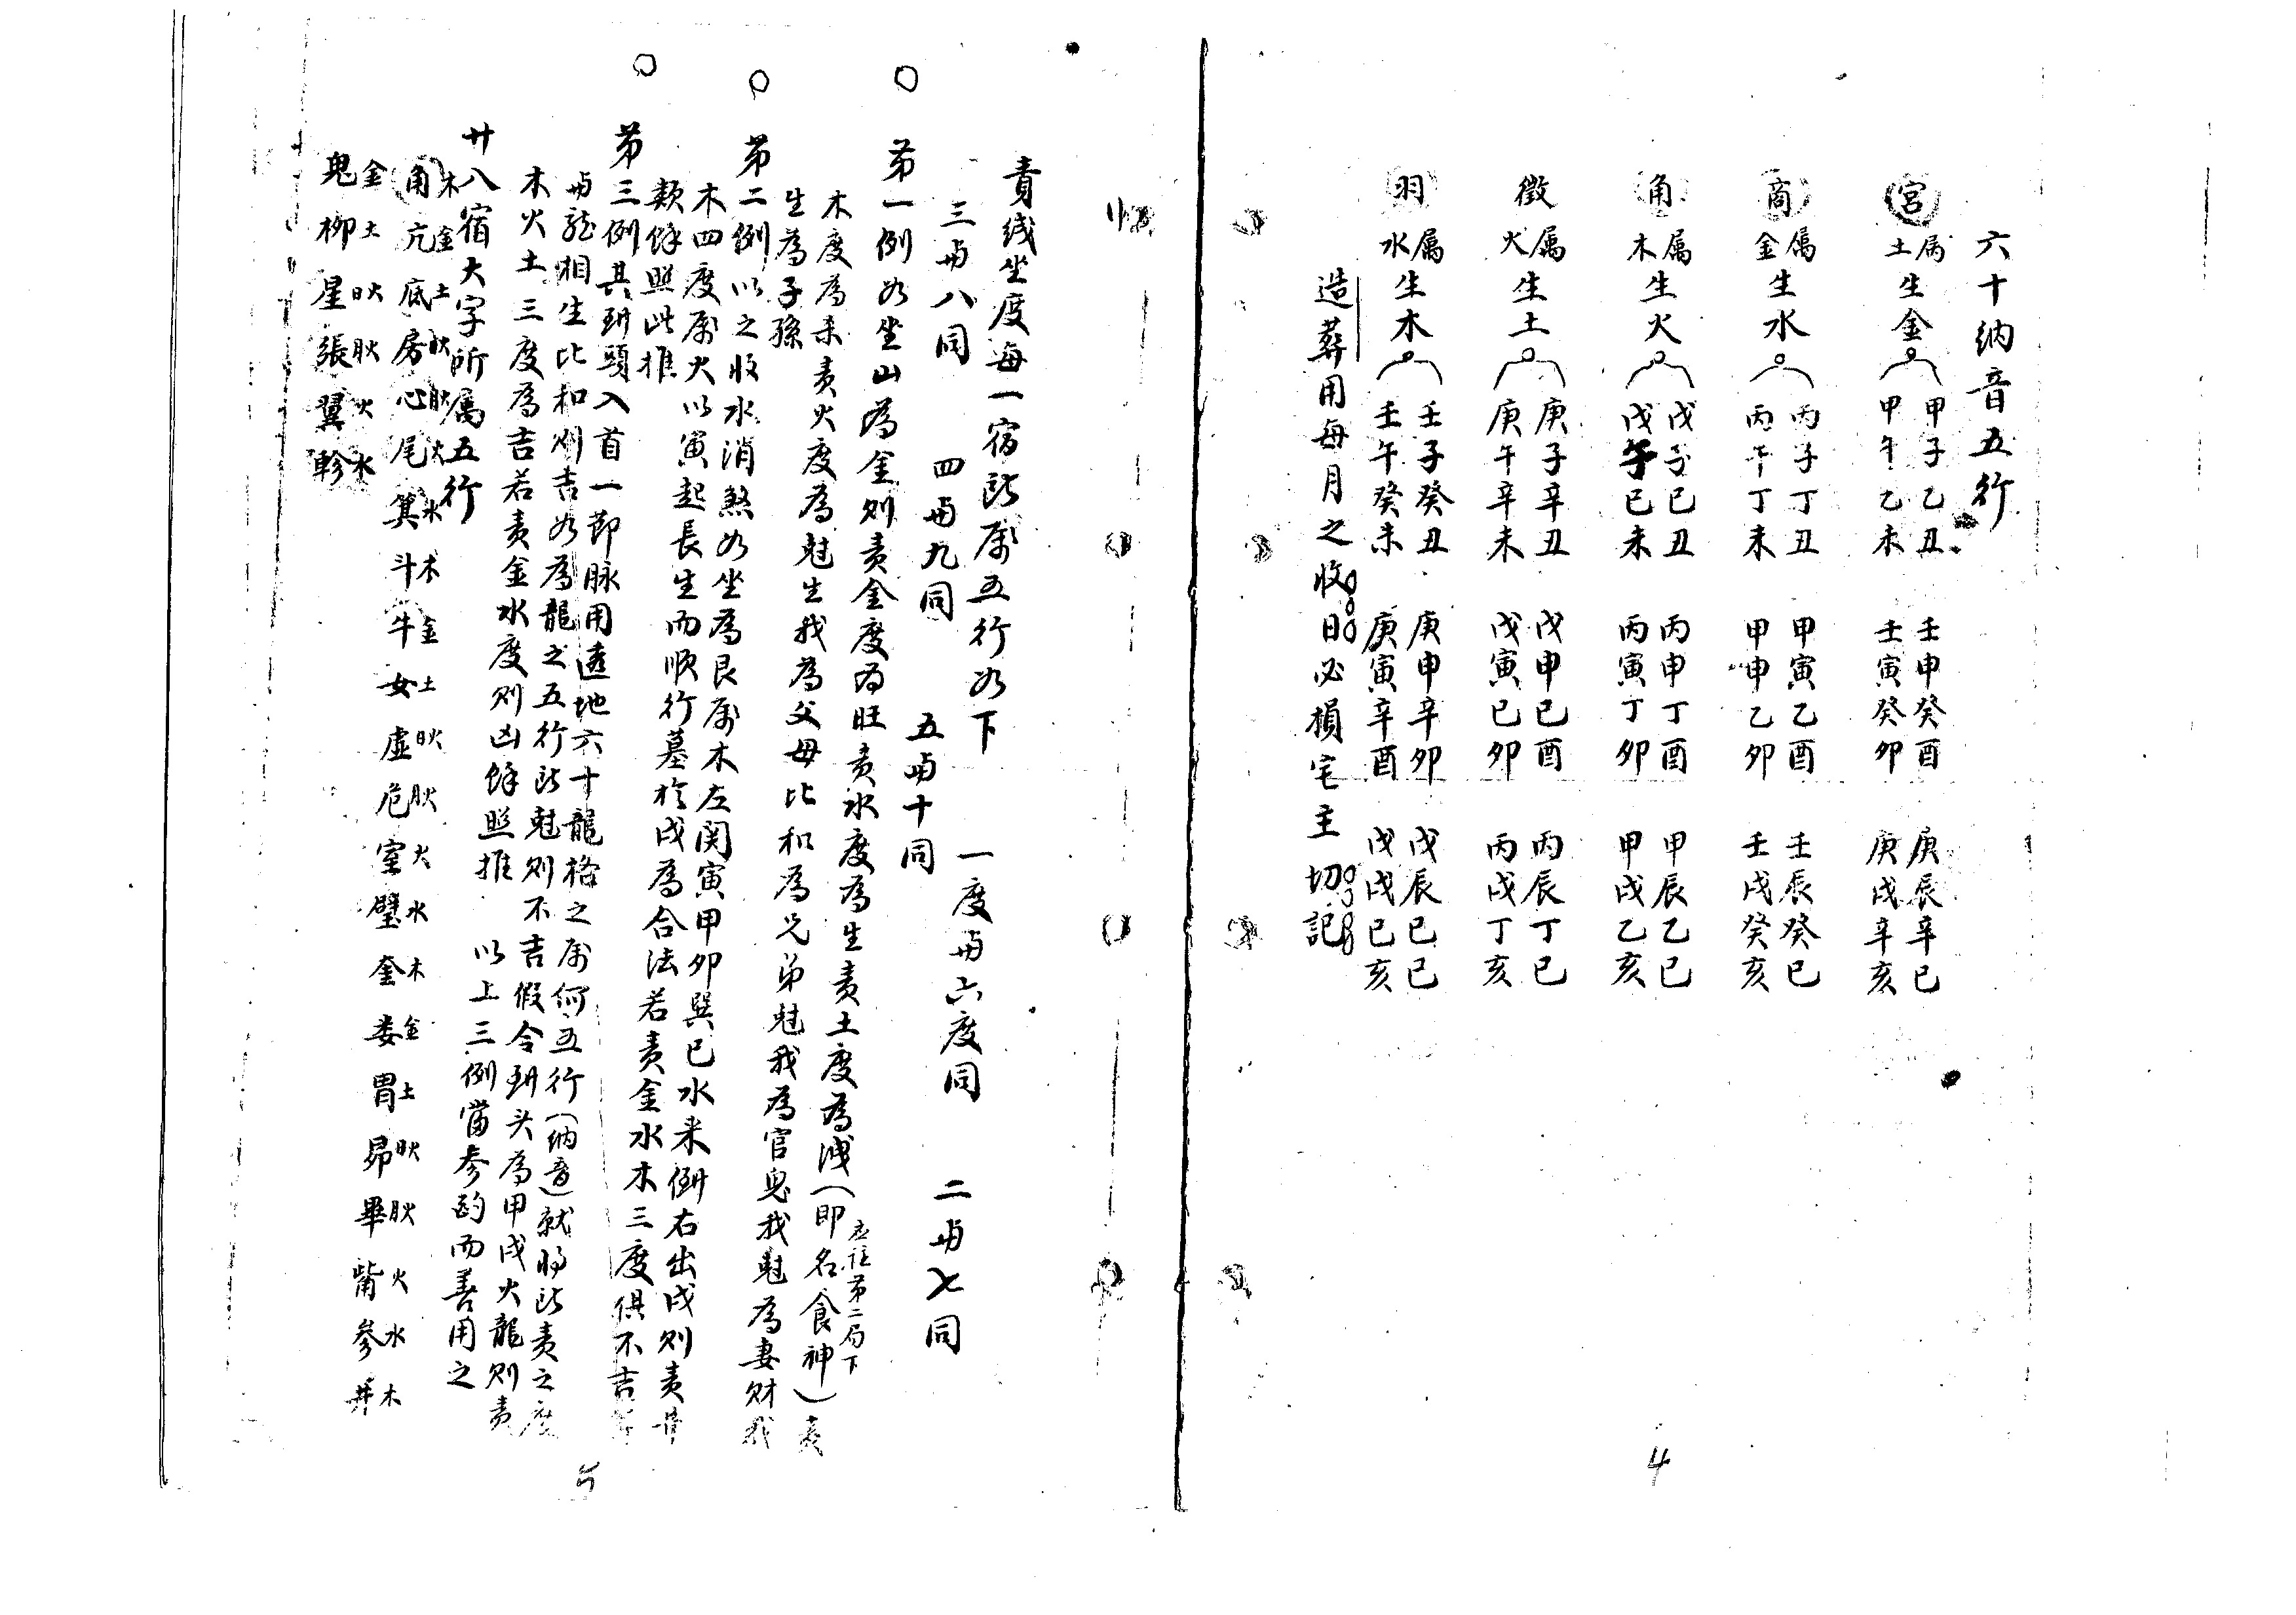 六十纳音五行
宮 属土 生金 甲子乙丑 壬申癸酉 庚辰辛巳
甲午乙未 壬寅癸卯 庚戌辛亥
商 属金 生水 丙子丁丑 甲寅乙酉 壬辰癸巳
丙午丁未 甲申乙卯 壬戌癸亥
角 属木 生火 戊子己丑 丙申丁酉 甲辰乙巳
戊午己未 丙寅丁卯 甲戌乙亥
徵 属火 生土 庚子辛丑 戊申己酉 丙辰丁巳
庚午辛未 戊寅己卯 丙戌丁亥
羽 属水 生木 壬子癸丑 庚申辛卯 戊辰己巳
壬午癸未 庚寅辛酉 戊戌己亥
造葬用每月之收日必損宅主 切記
4
責线坐度每一宿所属五行如下 一度与六度同 二与七同
三与八同 四与九同 五与十同
第一例如坐山為金则責金度为旺責水度為生責土度為洩(即名食神)責
应註第二局下
木度為杀責火度為尅生我為父母比和為兄弟尅我為官鬼我尅為妻財我
生為子孫
第二例以之收水消煞如坐為艮属木左関寅甲卯巽巳水来倒右出戌则責
木四度属火以寅起長生而顺行墓於戌為合法若責金水木三度俱不吉
類餘照此推
第三例其斑頭入首一節脉用透地六十龍格之属何五行(纳音)就将所責之度
与龍相生比和则吉如為龍之五行所尅则不吉假令斑头為甲戌火龍则責
木火土三度為吉若責金水度则凶餘照推 以上三例當参酌而善用之
廿八宿大字所属五行
角木 亢金 底土 房日火 心月火 尾火 箕水 斗木 牛金 女土 虚日火 危月火 室火 璧水 奎木 娄金 胃土 昴日火 畢月火 觜火 參水 井木
鬼金 柳土 星日火 張月火 翼火 軫水
5